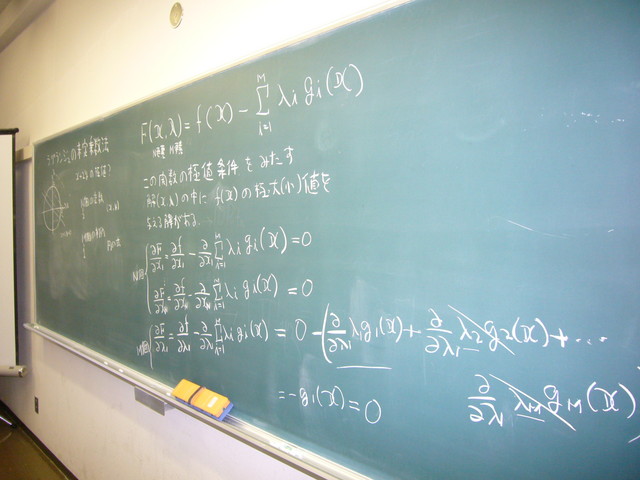 ラグランジュの未定乗数法
F(x,λ)=f(x)-∑_{i=1}^{M} λi gi(x)
N種 M種
この関数の極値条件をみたす
解(x,λ)の中に f(x)の極大(小)値を
与える解がある.
N個 { ∂F/∂x₁=∂f/∂x₁-∂/∂x₁ ∑_{i=1}^{M} λi gi(x)=0
∂F/∂x_N=∂f/∂x_N-∂/∂x_N ∑_{i=1}^{M} λi gi(x)=0
M個 { ∂F/∂λ₁=∂f/∂λ₁-∂/∂λ₁ ∑_{i=1}^{M} λi gi(x)=0-(∂/∂λ₁ λ₁g₁(x)+∂/∂λ₁ λ₂g₂(x)+…
∂/∂λ₁ λ_M g_M(x))
=-g₁(x)=0